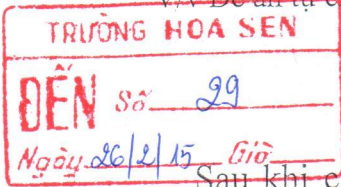 V/v Đề án tự c
TRƯỜNG HOA SEN
ĐẾN Số 29
Ngày 26/2/15 Giờ
Sau khi c